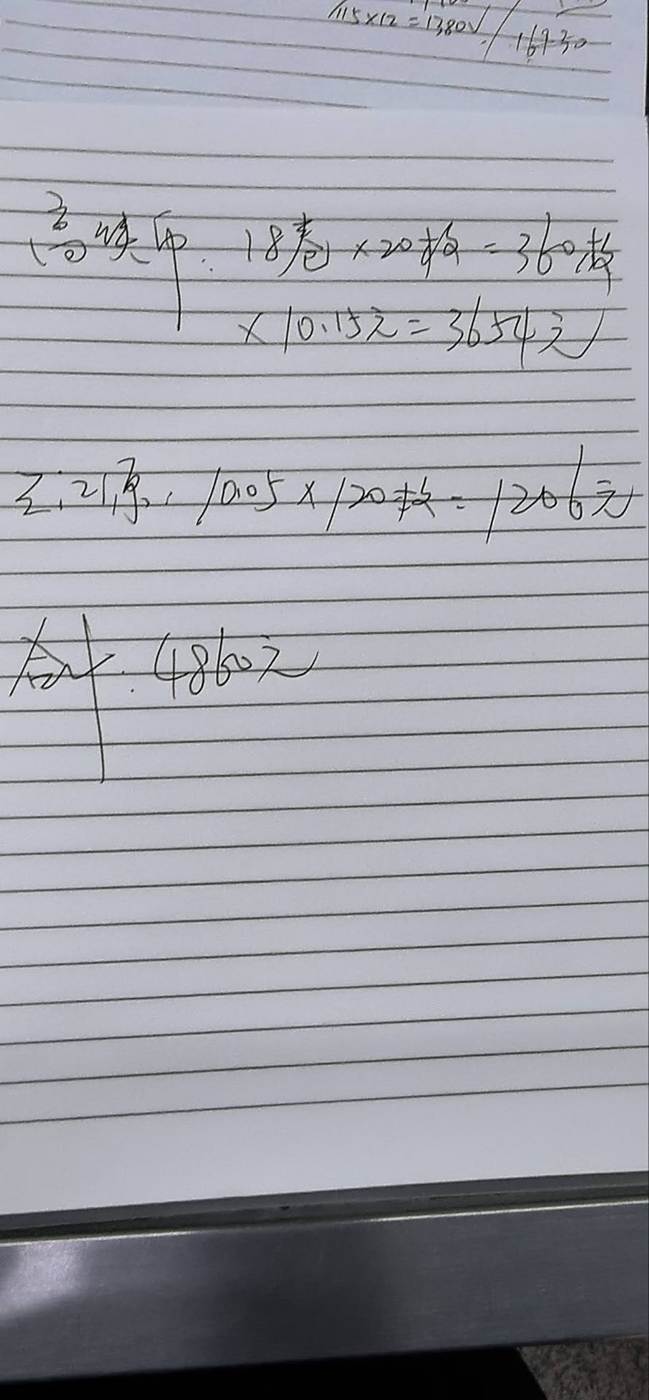 115×12=1380√
16930
高铁币. 18卷×20枚=360枚
×10.15元=3654元
10.05×120枚=1206元
合计. 4860元